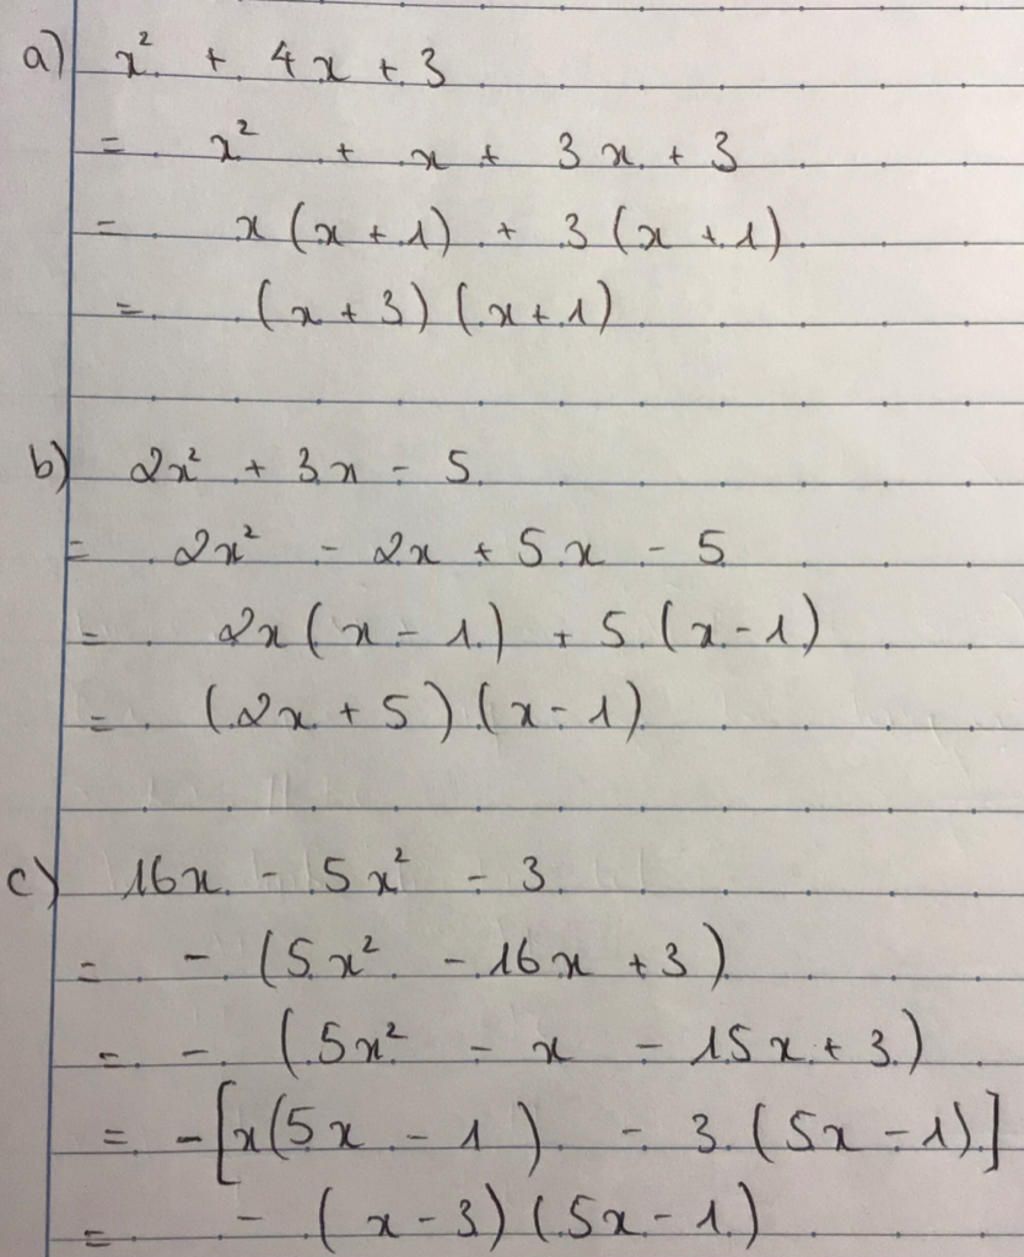 a) x² + 4x + 3
= x² + x + 3x + 3
= x(x+1) + 3(x+1)
= (x+3)(x+1)
b) 2x² + 3x - 5
= 2x² - 2x + 5x - 5
= 2x(x-1) + 5(x-1)
= (2x+5)(x-1)
c) 16x - 5x² - 3
= -(5x² - 16x + 3)
= -(5x² - x - 15x + 3)
= -[x(5x - 1) - 3(5x - 1)]
= -(x-3)(5x-1)